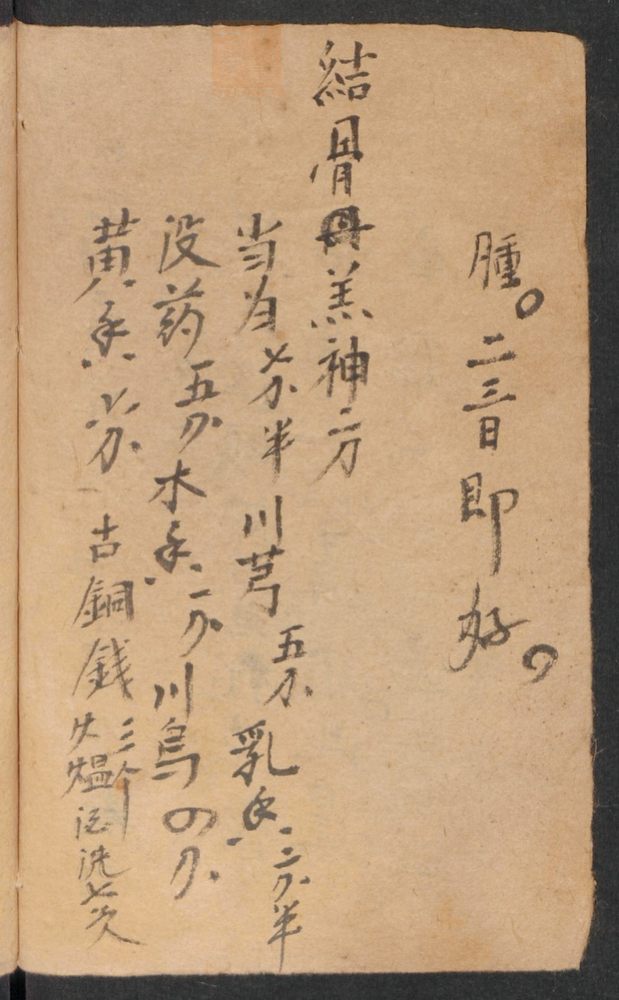 腫。二三日即好。
結骨丹羔神方
当归七分半 川芎五分 乳香二分半
没药五分 木香一分 川烏四分
黄香六分 古銅錢三个 火煴酒洗七次